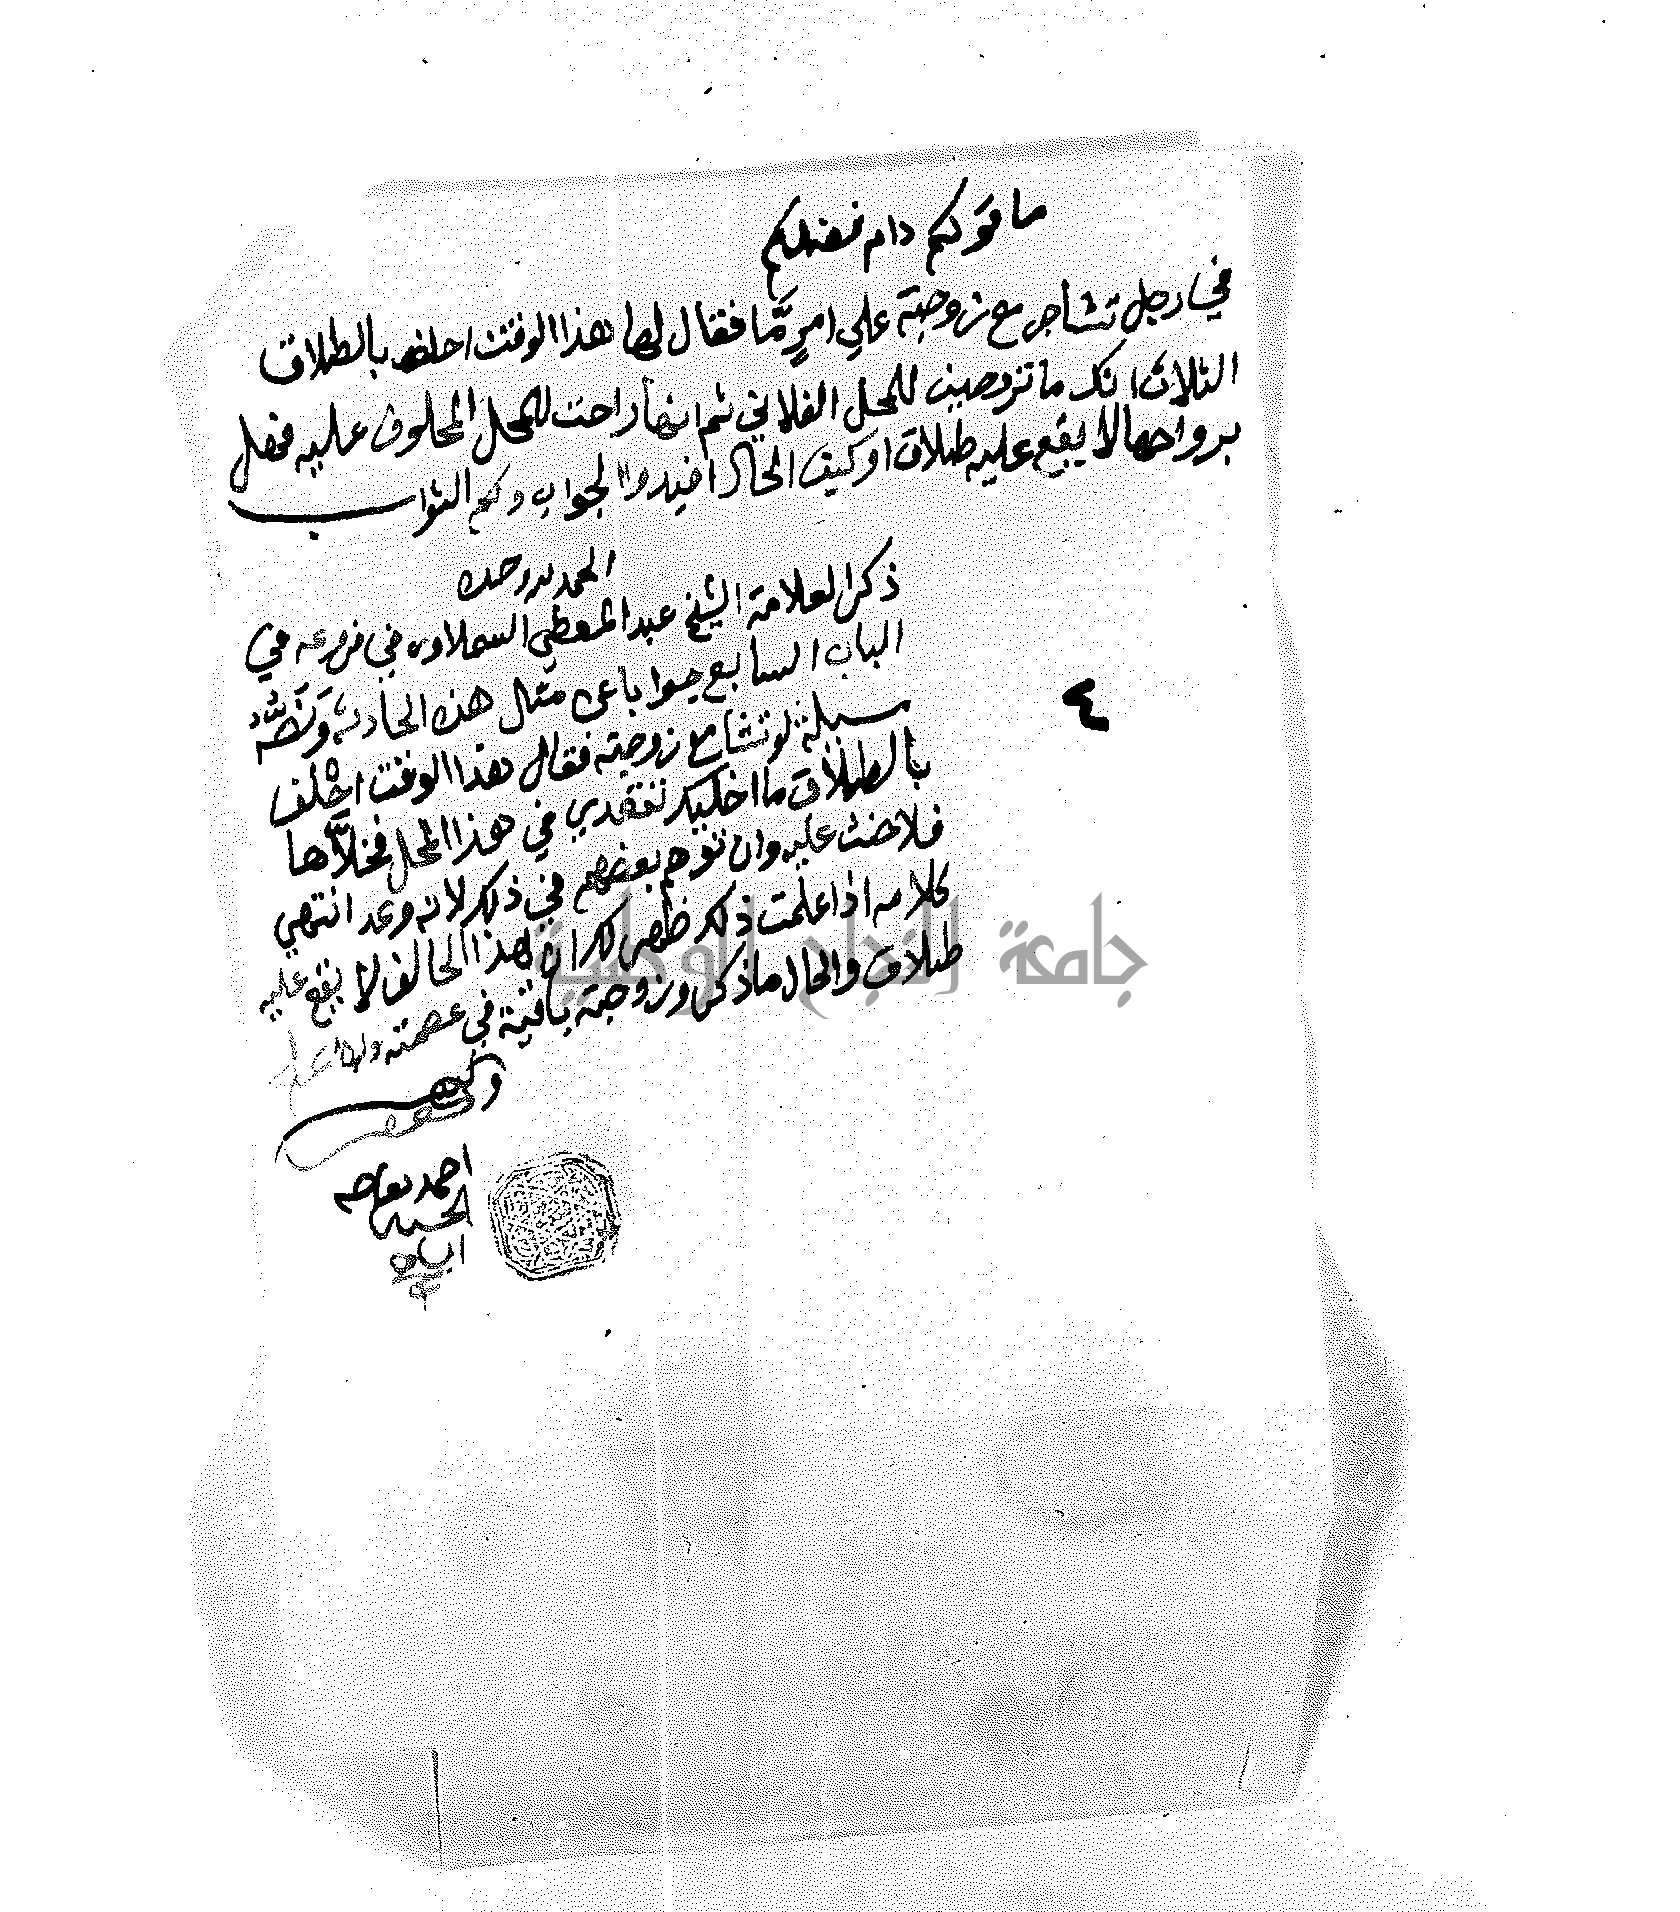 ما قولكم دام فضلكم
في رجل تشاجر مع زوجته علي امرٍ مّا فقال لها هذا الوقت احلف بالطلاق
الثلاث انك ما تروحين للمحل الفلاني ثم انها راحت للمحل المحلوف عليه فهل
برواحها لا يقع عليه طلاق او كيف الحال افيدوا الجواب ولكم الثواب
الحمد لله وحده
ذكر العلامة الشيخ عبد المعطي السملاوى في فروعه في
الباب السابع جوابا عن مثال هذه الحادثة ونصّه
مسيلة لو تشا مع زوجته فقال هذا الوقت احْلف
بالطلاق ما اخليك تقعدي في هذا المحل فخلاّها
فلا حنث عليه وان توهم بعضهم في ذلك لانه وعد انتهي
كلامه اذا علمت ذلك ظهر لك ان هذا الحالف لا يقع عليه
طلاق والحال ما ذكر وزوجته باقية في عصمته والله اعلم
وكتبه
احمد
٤
جامعة النجاح الوطنية